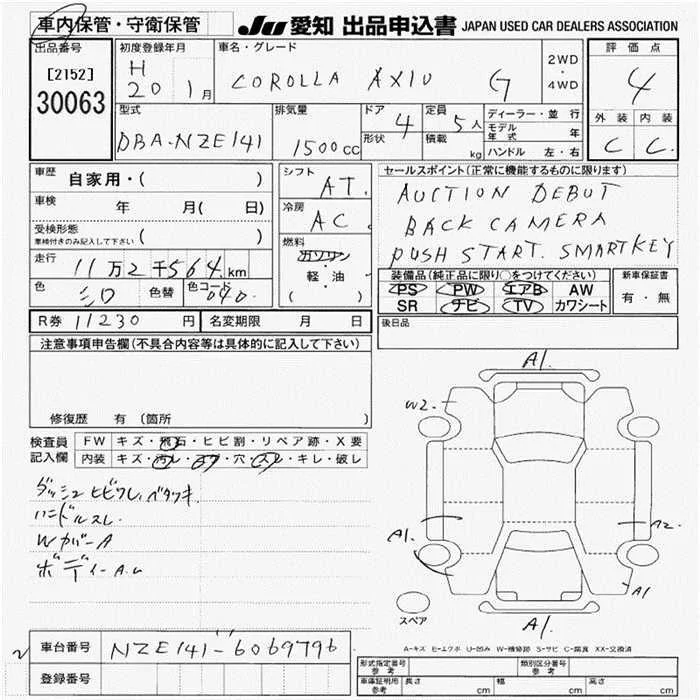 車内保管・守衛保管 JU 愛知 出品申込書 JAPAN USED CAR DEALERS ASSOCIATION
出品番号 初度登録年月 車名・グレード 2WD ・ 4WD 評価点
[2152] H 20 1月 COROLLA AXIO G 4
30063 型式 排気量 ドア 4 定員 5人 ディーラー・並行 外装 内装
DBA-NZE141 1500cc 形状 積載 kg モデル年式 年 C C
ハンドル 左・右
車歴 自家用・( ) シフト AT. セールスポイント(正常に機能するものに限ります)
車検 年 月( 日) 冷房 AC AUCTION DEBUT
受検形態 ( ) BACK CAMERA
車検付きのみ記入して下さい 燃料 ガソリン PUSH START. SMARTKEY
走行 11万2千564km 軽・油 装備品(純正品に限り○をつけてください) 新車保証書
色 シロ 色替 色コード 040 ( ) PS PW エアB AW 有・無
SR ナビ TV カワシート
R券 11230 円 名変期限 月 日 後日品
注意事項申告欄(不具合内容等は具体的に記入して下さい)
修復歴 有 (箇所 )
A1.
W2.
検査員 FW キズ・飛石・ヒビ割・リペア跡・X要
記入欄 内装 キズ・汚レ・コゲ・穴・スレ・キレ・破レ
ダッシュヒビワレ、ベタツキ
ハンドルスレ
WカバーA
ボディーA.U
A1. A2.
A1
スペア A1.
A-キズ E-エクボ U-凹み W-補修跡 S-サビ C-腐食 XX-交換済
車台番号 NZE141-6069796
登録番号
形式指定番号 参考 類別区分番号 参考
車庫証明用 参考 長さ cm 幅 cm 高さ cm